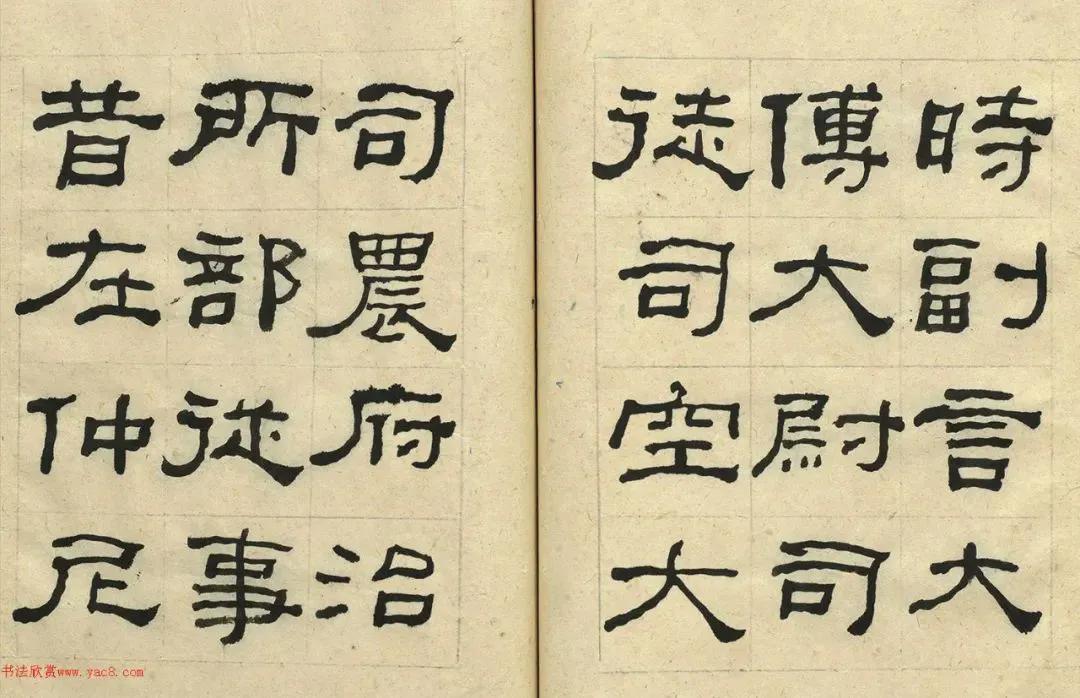 時副言大
傅大尉司
徒司空大
司農府治
所部從事
昔在仲尼
书法欣赏www.yac8.com